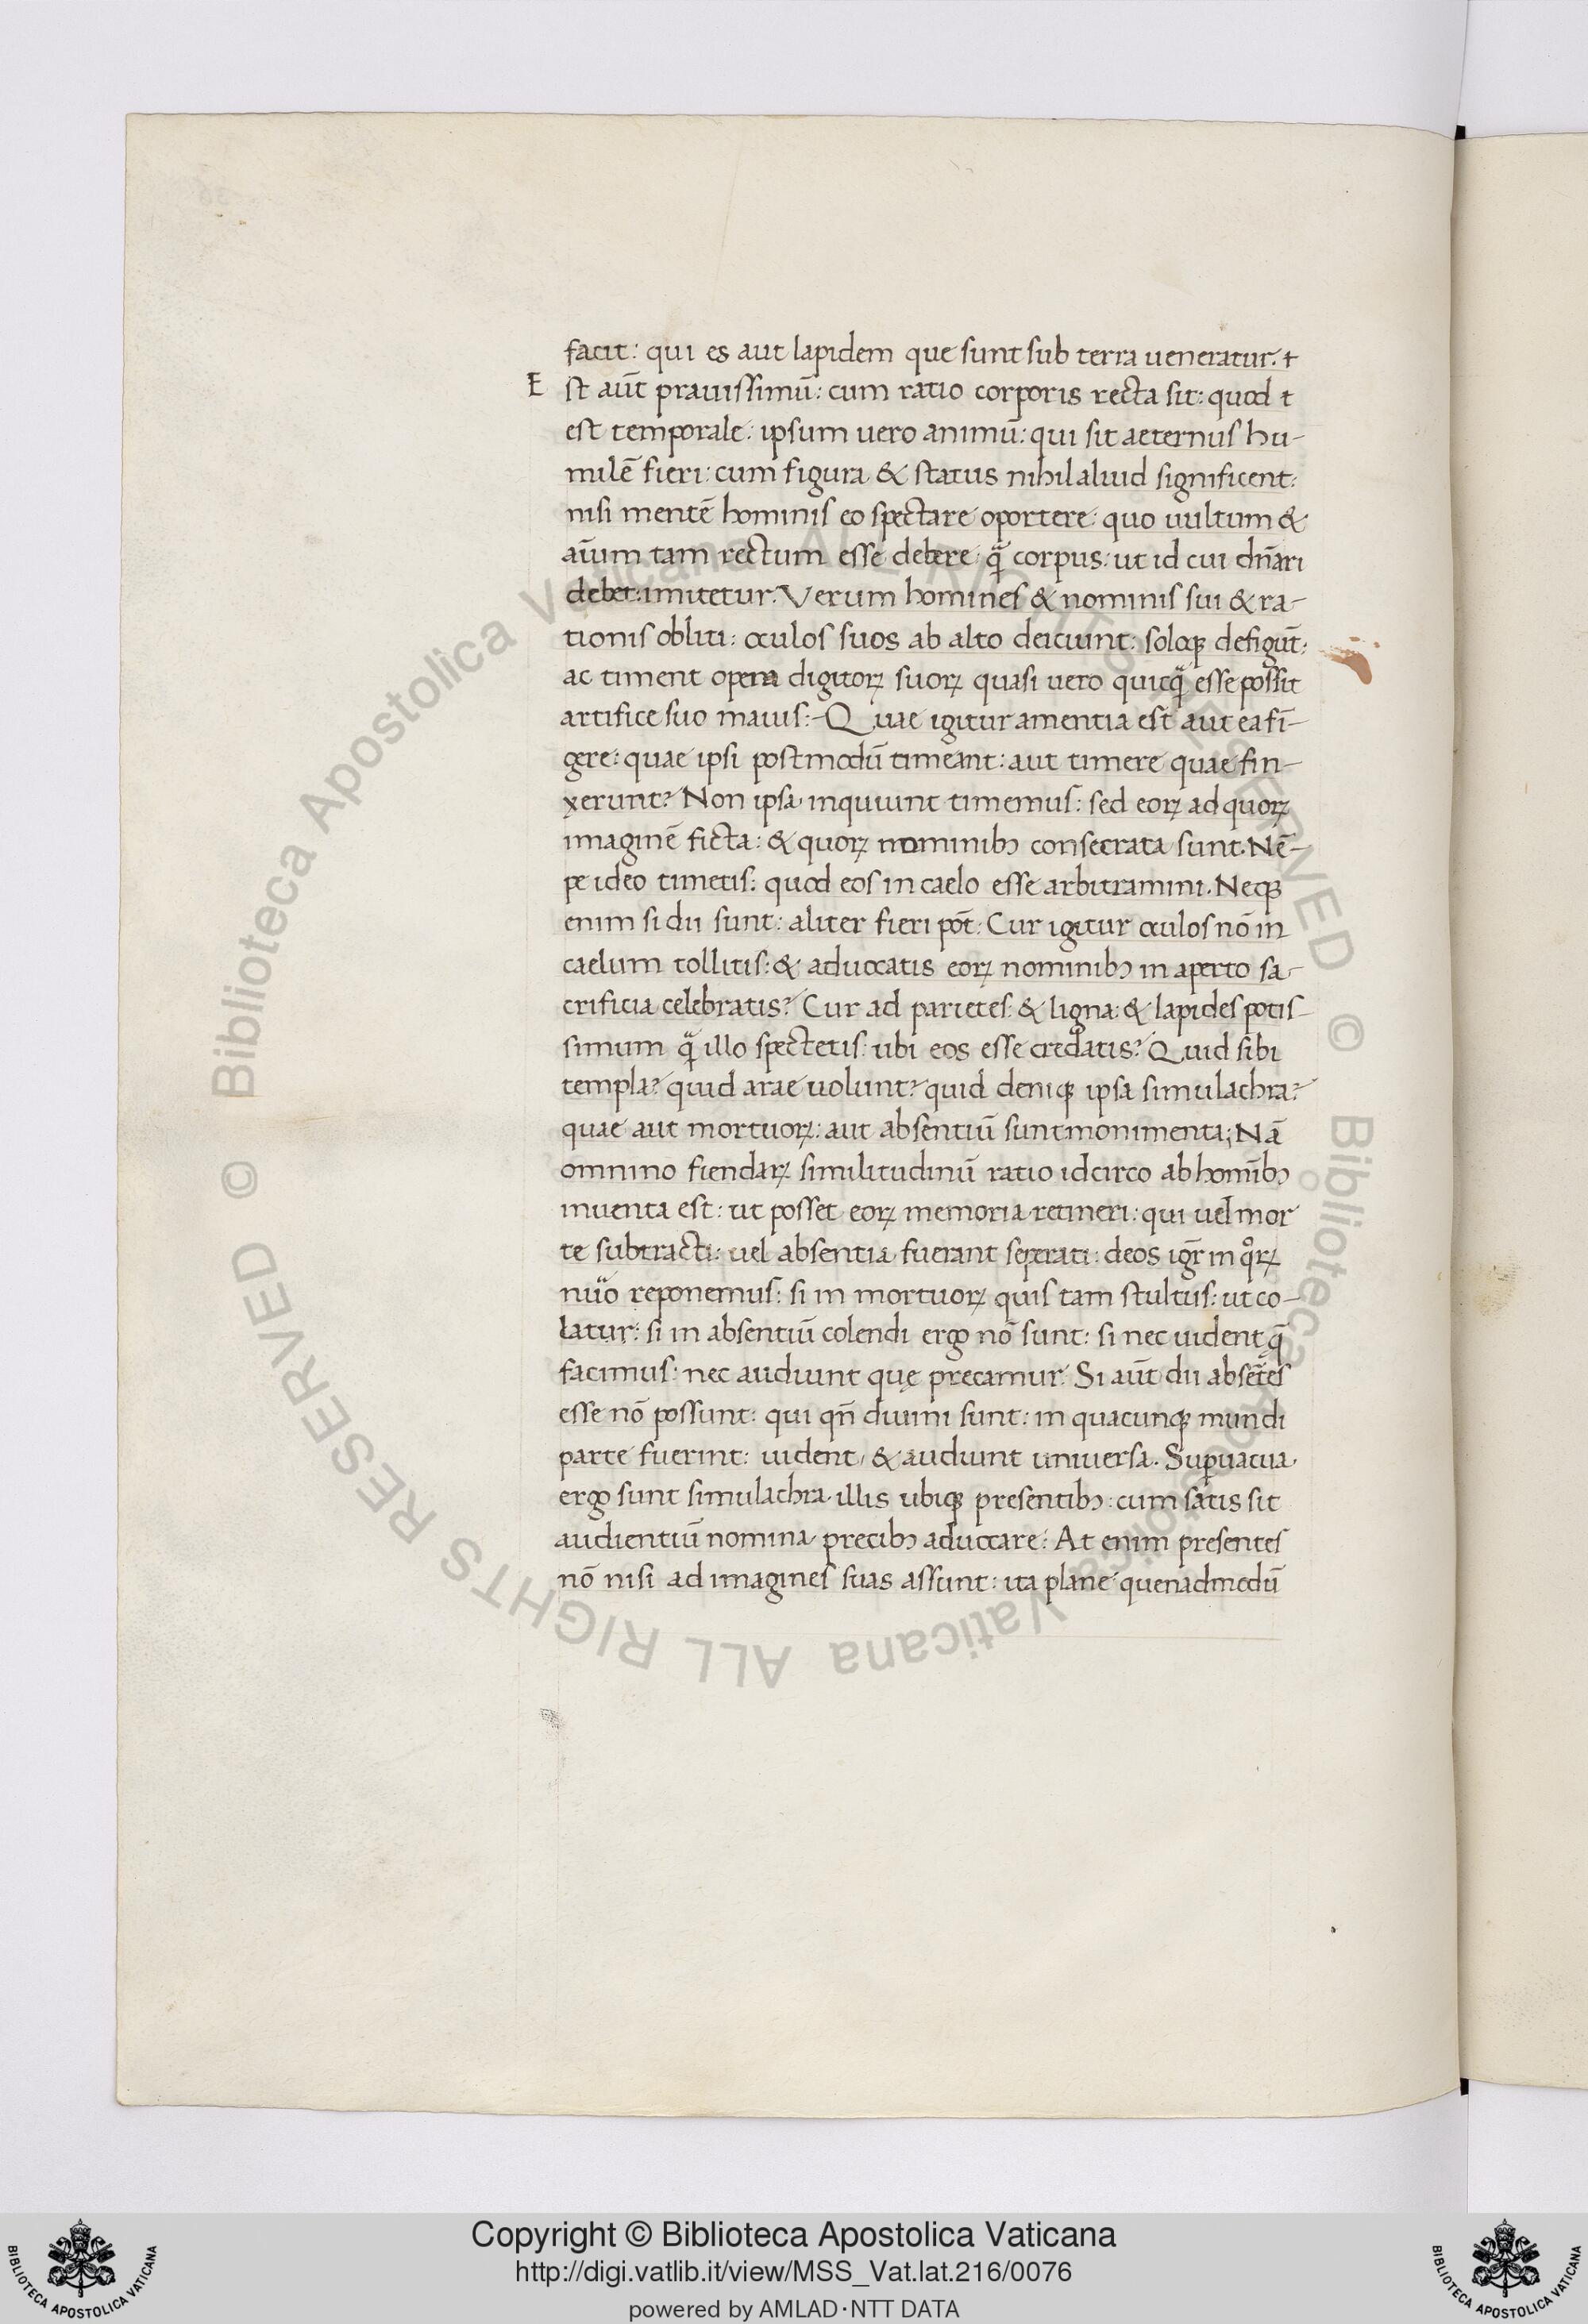 facit: qui es aut lapidem que sunt sub terra ueneratur. +
E st aūt prauissimū: cum ratio corporis recta sit: quod t
est temporale: ipsum uero animū: qui sit aeternus hu-
milē fieri: cum figura & status nihil aliud significent:
nisi mentē hominis eo spectare oportere: quo uultum &
aīum tam rectum esse debere: q̄ corpus: ut id cui dn̄ari
debet: imitetur. Verum homines & nominis sui & ra-
tionis obliti: oculos suos ab alto deiciunt: soloq; defigūt:
ac timent opera digitoꝝ suoꝝ quasi uero quicq̄ esse possit
artifice suo maius:- Quae igitur amentia est aut ea fī-
gere: quae ipsi postmodū timeant: aut timere quae fin-
xerunt? Non ipsa inquiunt timemus: sed eoꝝ ad quoꝝ
imaginē ficta: & quoꝝ nominibꝰ consecrata sunt. Nē-
pe ideo timetis: quod eos in caelo esse arbitramini. Neq;
enim si dii sunt: aliter fieri pōt: Cur igitur oculos nō in
caelum tollitis: & aduocatis eoꝝ nominibꝰ in aperto sa-
crificia celebratis? Cur ad parietes: & ligna: & lapides potis-
simum q̄ illo spectetis: ubi eos esse credatis? Quid sibi
templa? quid arae uolunt? quid deniq; ipsa simulachra?
quae aut mortuoꝝ: aut absentiū sunt monimenta; Nā
omnino fiendaꝝ similitudinū ratio idcirco ab homībꝰ
inuenta est: ut posset eoꝝ memoria retineri: qui uel mor
te subtracti: uel absentia fuerant seꝑati: deos igr̄ in qͦrꝝ
nūo reponemus: si in mortuoꝝ quis tam stultus: ut co-
latur: si in absentiū colendi ergo nō sunt: si nec uident q̄
facimus: nec audiunt quę precamur. Si aūt dii absētes
esse nō possunt: qui qn̄ diuini sunt: in quacunq; mundi
parte fuerint: uident, & audiunt uniuersa. Suꝑuacua
ergo sunt simulachra illis ubiq; presentibꝰ: cum satis sit
audientiū nomina precibꝰ aduocare: At enim presentes
nō nisi ad imagines suas assunt: ita plane quenadmodū
© Biblioteca Apostolica Vaticana ALL RIGHTS RESERVED © Biblioteca Apostolica Vaticana ALL RIGHTS RESERVED
Copyright © Biblioteca Apostolica Vaticana
http://digi.vatlib.it/view/MSS_Vat.lat.216/0076
powered by AMLAD·NTT DATA
BIBLIOTECA APOSTOLICA VATICANA
BIBLIOTECA APOSTOLICA VATICANA